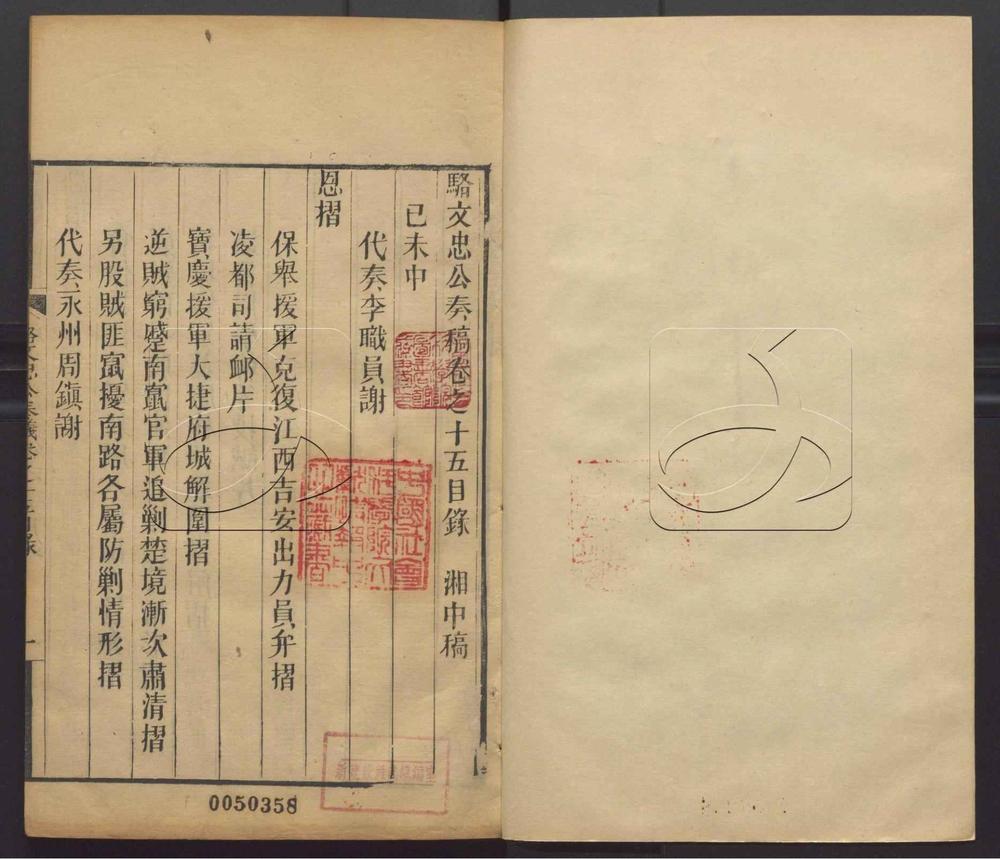 駱文忠公奏稿卷之十五目錄 湘中稿
己未中
代奏李職員謝
恩摺
保舉援軍克復江西吉安出力員弁摺
凌都司請䘏片
寶慶援軍大捷府城解圍摺
逆賊窮蹙南竄官軍追剿楚境漸次肅清摺
另股賊匪竄擾南路各屬防剿情形摺
代奏永州周鎮謝
0050358